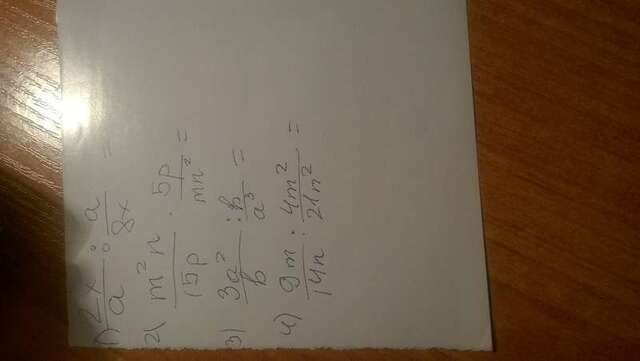 1) 2x/a : a/8x =
2) m²n/15p · 5p/mn² =
3) 3a²/b : b/a³ =
4) 9m/14n : 4m²/21n² =